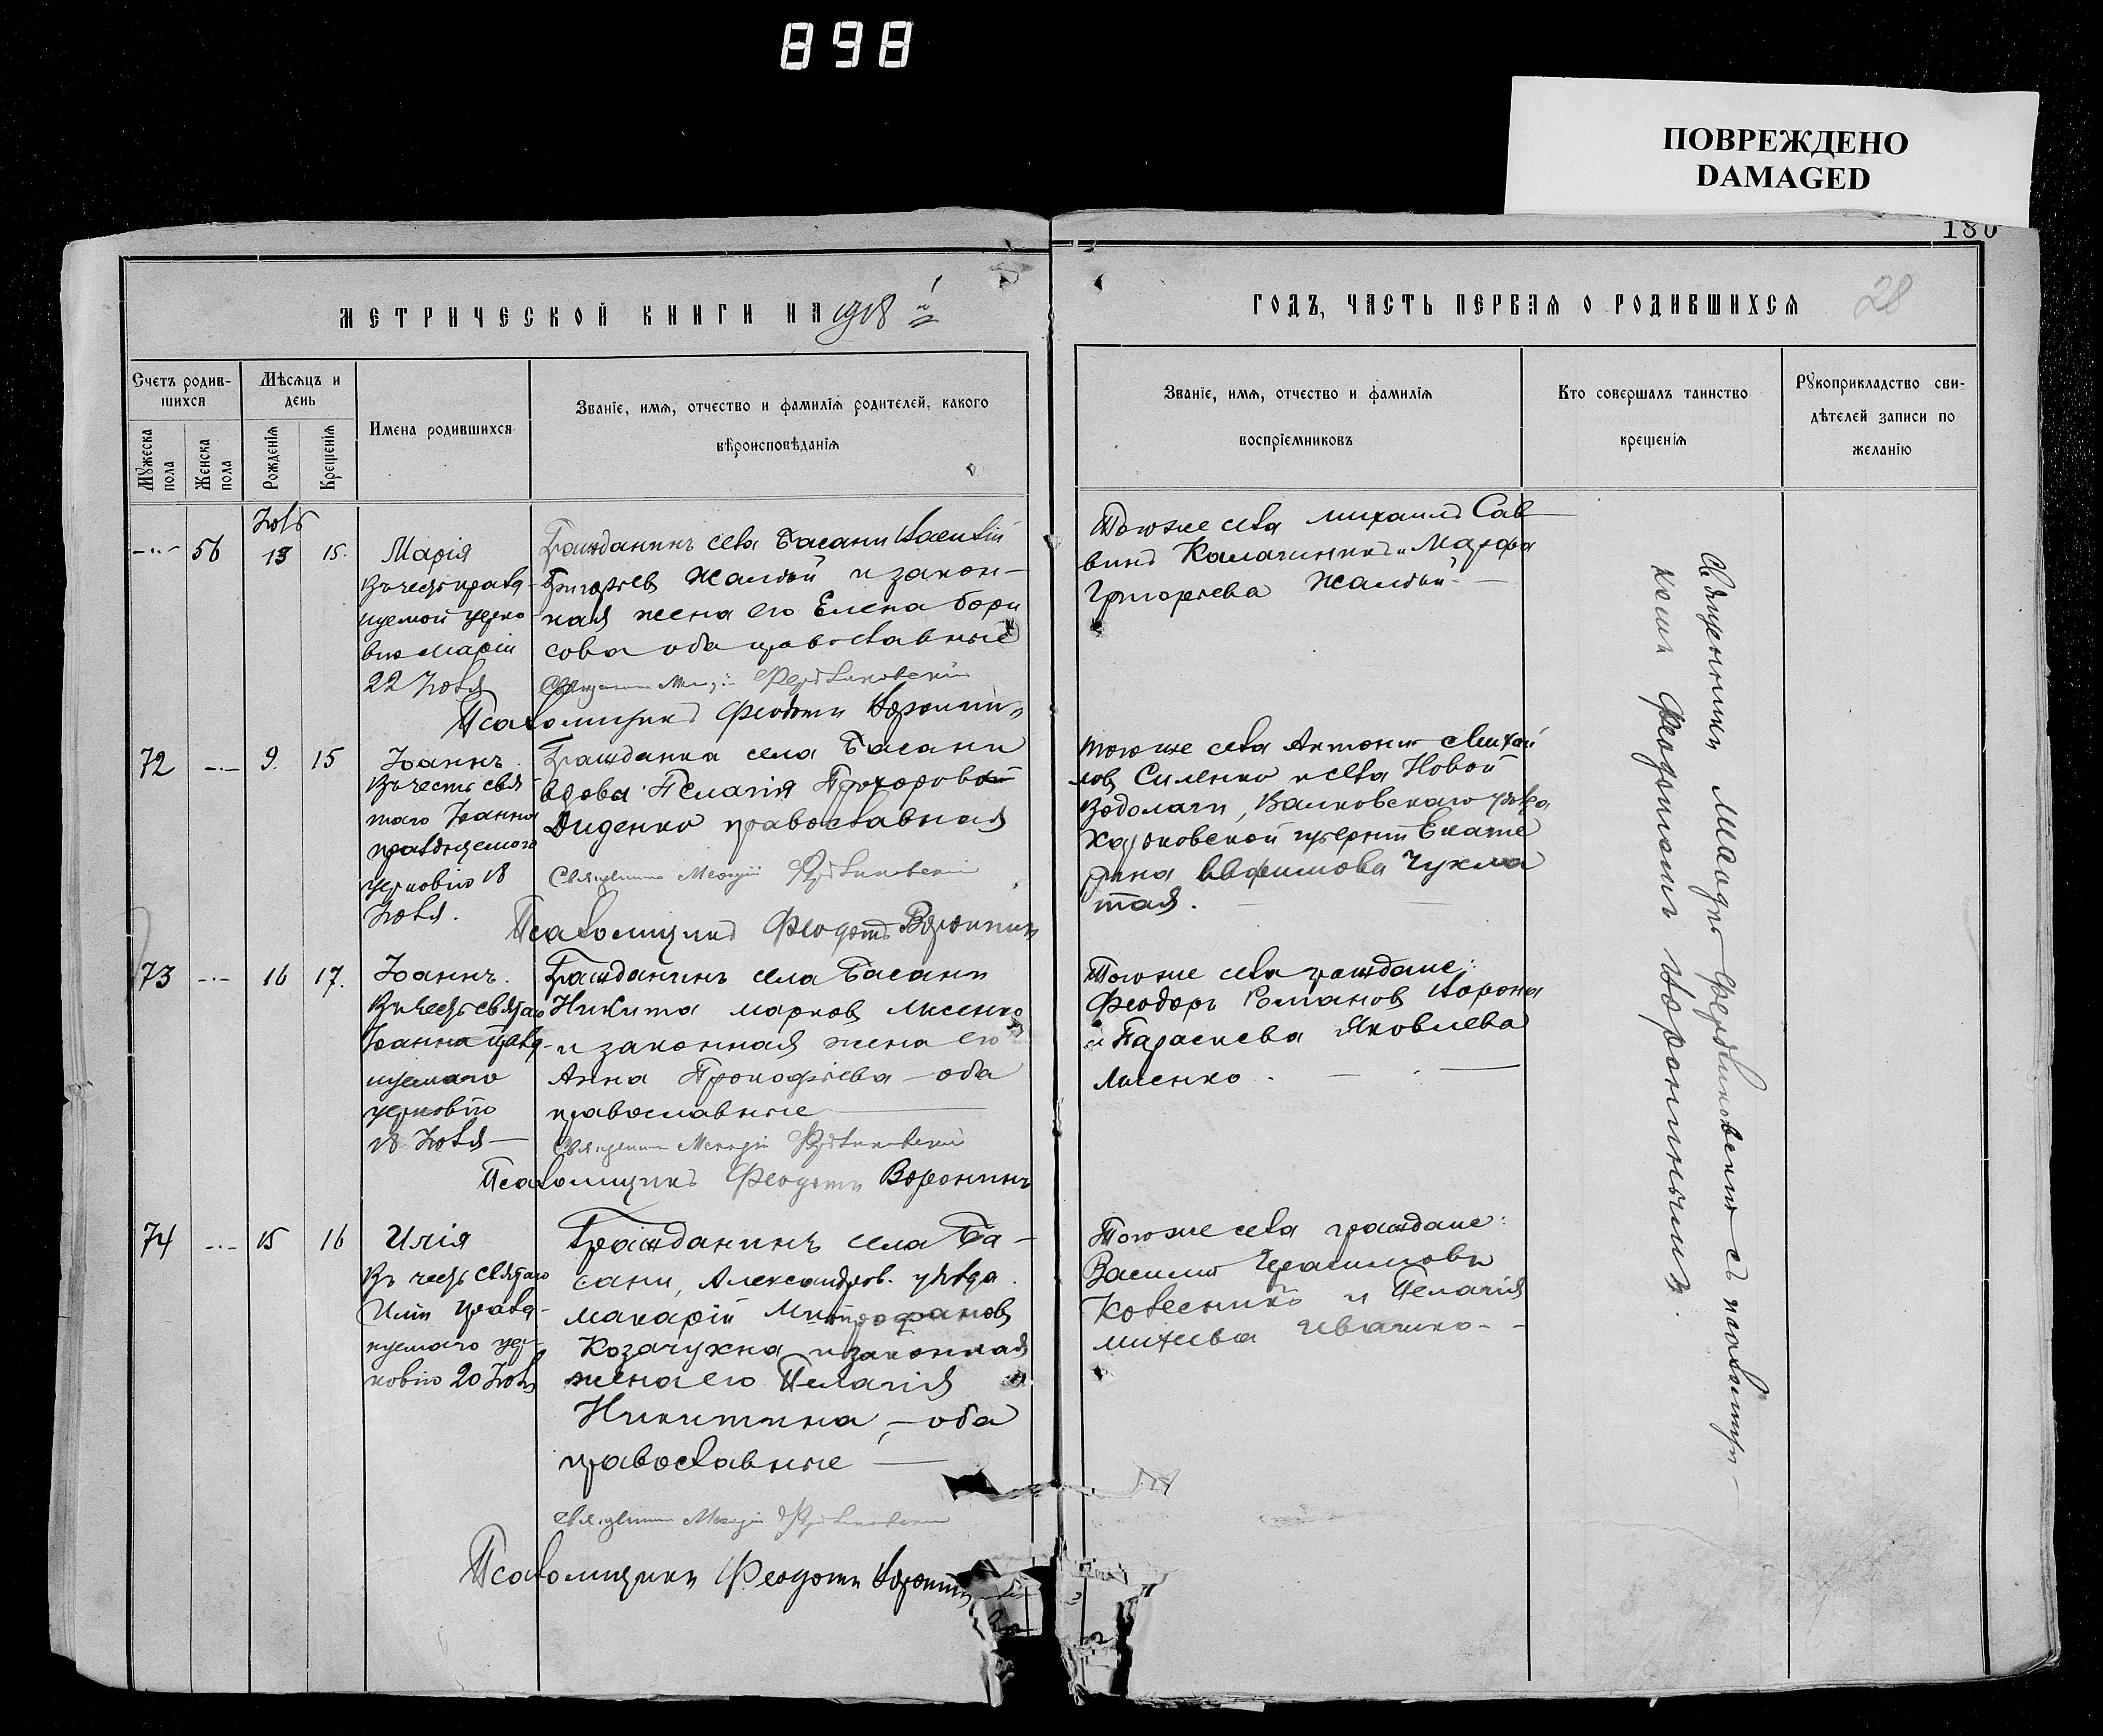 898
ПОВРЕЖДЕНО
DAMAGED
180
28
МЕТРИЧЕСКОЙ КНИГИ НА 1918 й
ГОДЪ, ЧАСТЬ ПЕРВАЯ О РОДИВШИХСЯ
Счетъ родив-
шихся
Мужеска пола
Женска пола
Мѣсяцъ и
день
Рожденія
Крещенія
Имена родившихся
Званіе, имя, отчество и фамилія родителей, какого
вѣроисповѣданія
Званіе, имя, отчество и фамилія
воспріемниковъ
Кто совершалъ таинство
крещенія
Рукоприкладство сви-
дѣтелей записи по
желанію
Іюль
56
13
15.
Марія
Въ честь праз
церко
вію Маріи
22 Іюля
Гражданинъ села Басани
Григорьев и закон-
ная жена его Елена Бори
сова оба православные
Священникъ
Псаломщикъ Феодотъ Воронин
Того же села Михаилъ Сав
винъ и
Григорьева
72
9.
15
Іоаннъ.
Въ честь свя
таго Іоанна
празднуемаго
церковію 18
Іюля.
Гражданка села Басани
вдова Пелагія Прохорова
Диденко православная
Священникъ
Псаломщикъ Феодотъ Воронинъ
Того же села Антоній Михаи
лов Силенко и села Новой
Водолаги, Валковскаго уѣзда
Харьковской губерніи Екате
рина Евфимова
тая.
73
16
17.
Іоаннъ.
Въ честь святаго
Іоанна празд-
нуемаго
церковію
18 Іюля
Гражданинъ села Басани
Никита Марков Лисенко
и законная жена его
Анна Прокофьева - оба
православные
Священникъ
Псаломщикъ Феодотъ Воронинъ
Того же села граждане:
Феодоръ Романов Ворона
и Параскева Яковлева
Лисенко.
74
15
16
Илія
Въ честь святаго
Иліи празд-
нуемаго цер-
ковію 20 Іюля
Гражданинъ села Ба-
сани, Александров. уѣзда
Макарій Митрофанов
Козачухна и законная
жена его Пелагія
Никитина, - оба
православные
Священникъ
Псаломщикъ Феодотъ Воронинъ
Того же села граждане:
Василій Герасимовъ
Колесникъ и Пелагія
Ивашко
Священникъ съ псаломщи-
комъ Феодотомъ Воронинымъ.